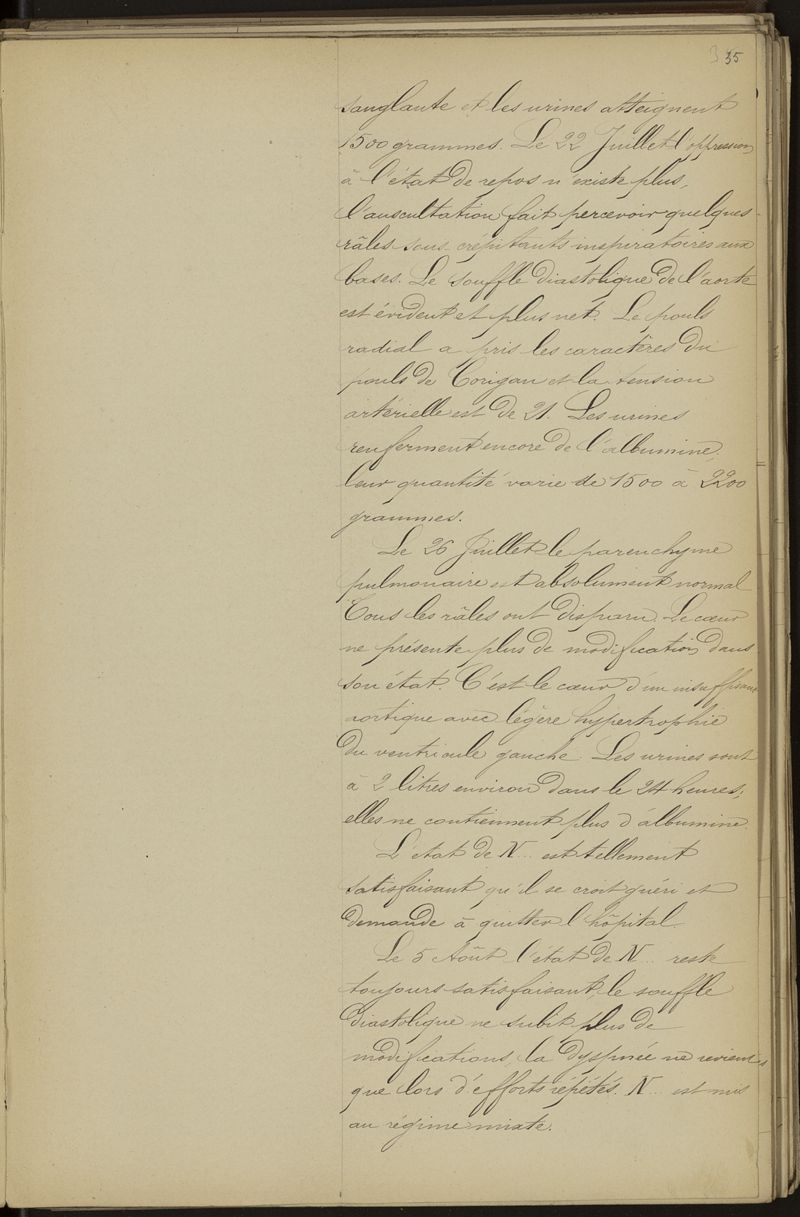 335
sanglante et les urines atteignent
1500 grammes. Le 22 Juillet l'oppression
à l'état de repos n'existe plus,
l'auscultation fait percevoir quelques
râles sous crépitants inspiratoires aux
bases. Le souffle diastolique de l'aorte
est évident et plus net. Le pouls
radial a pris les caractères du
pouls de Corigan et la tension
artérielle est de 21. Les urines
renferment encore de l'albumine,
leur quantité varie de 1500 à 2200
grammes.
Le 26 Juillet le parenchyme
pulmonaire est absolument normal
Tous les râles ont disparu. Le cœur
ne présente plus de modification dans
son état. C'est le cœur d'un insuffisant
aortique avec légère hypertrophie
du ventricule gauche. Les urines sont
à 2 litres environ dans le 24 heures,
elles ne contiennent plus d'albumine.
L'état de N... est tellement
satisfaisant qu'il se croit guéri et
demande à quitter l'hôpital.
Le 5 Août l'état de N... reste
toujours satisfaisant, le souffle
diastolique ne subit plus de
modifications, la dyspnée ne revient
que lors d'efforts répétés. N... est mis
au régime mixte.